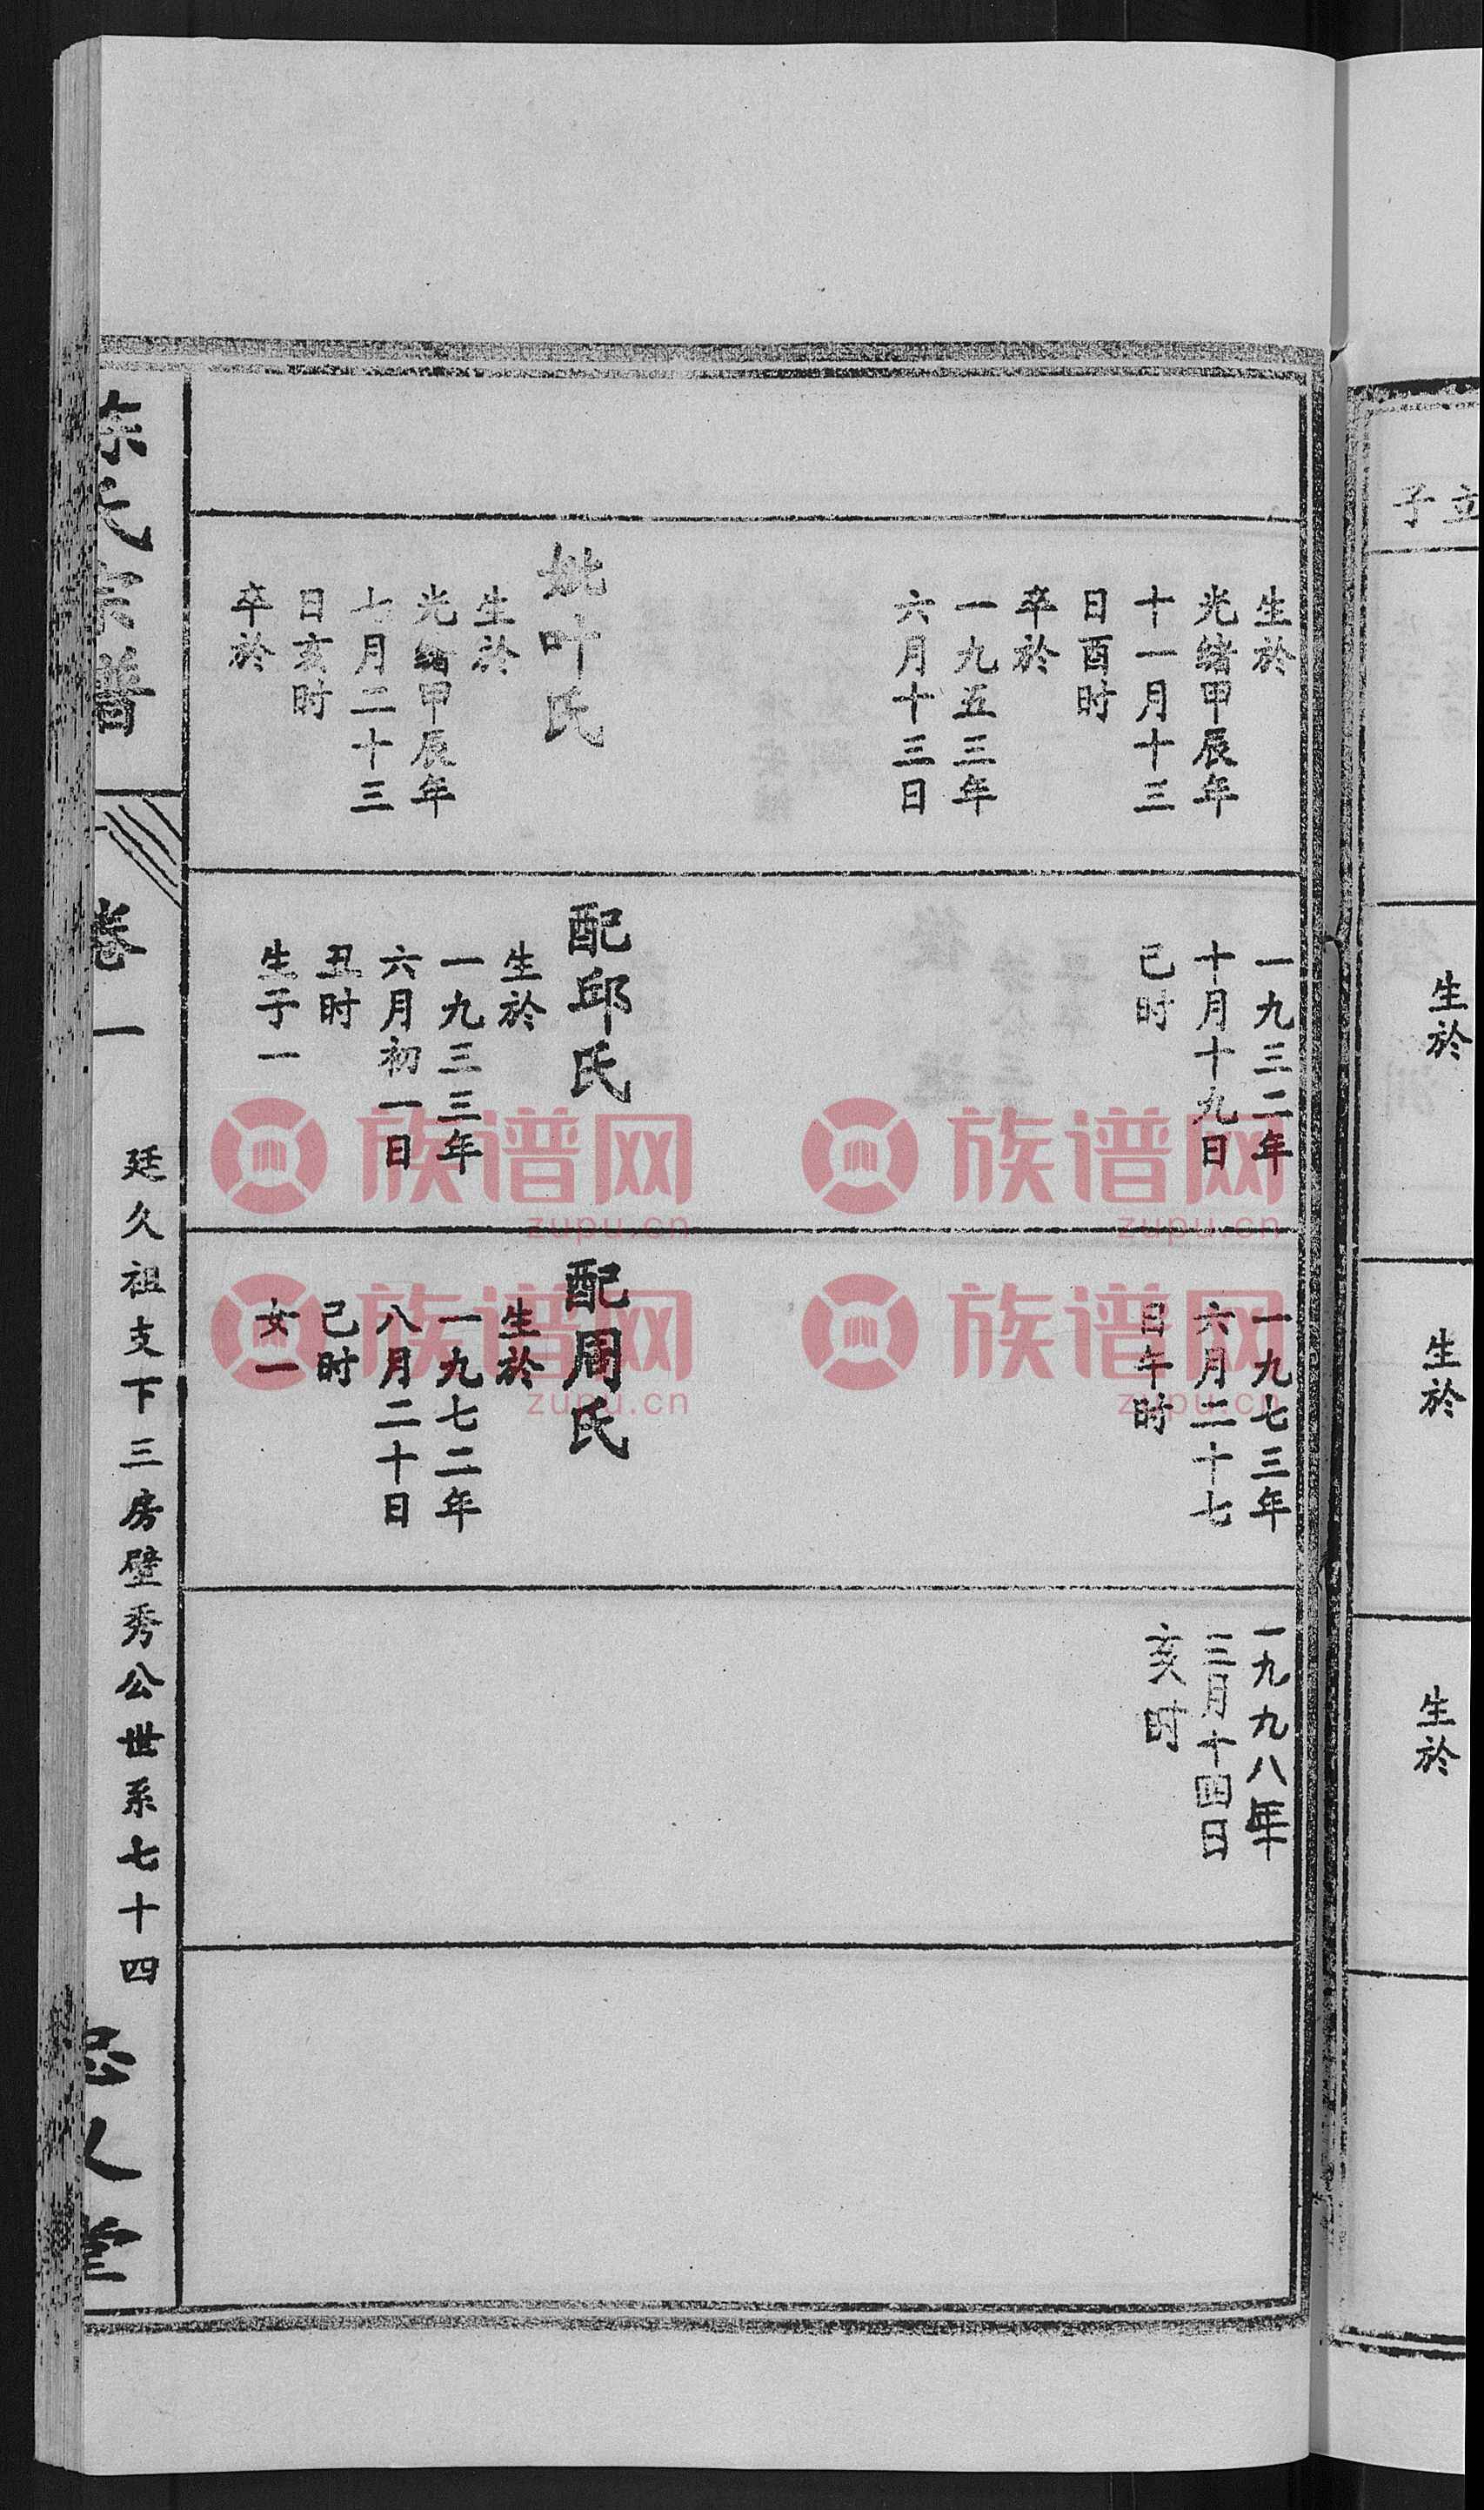 立
子
生於
生於
生於
生於
光绪甲辰年
十一月十三
日酉时
卒於
一九五三年
六月十三日
妣叶氏
生於
光绪甲辰年
七月二十三
日亥时
卒於
一九三二年
十月十九日
己时
配邱氏
生於
一九三三年
六月初一日
丑时
生子一
一九七三年
六月二十七
日午时
配周氏
生於
一九七二年
八月二十日
己时
女一
一九九八年
三月十四日
亥时
氏宗谱
卷一
廷久祖支下三房壁秀公世系七十四
堂
族谱网
zupu.cn
族谱网
zupu.cn
族谱网
zupu.cn
族谱网
zupu.cn